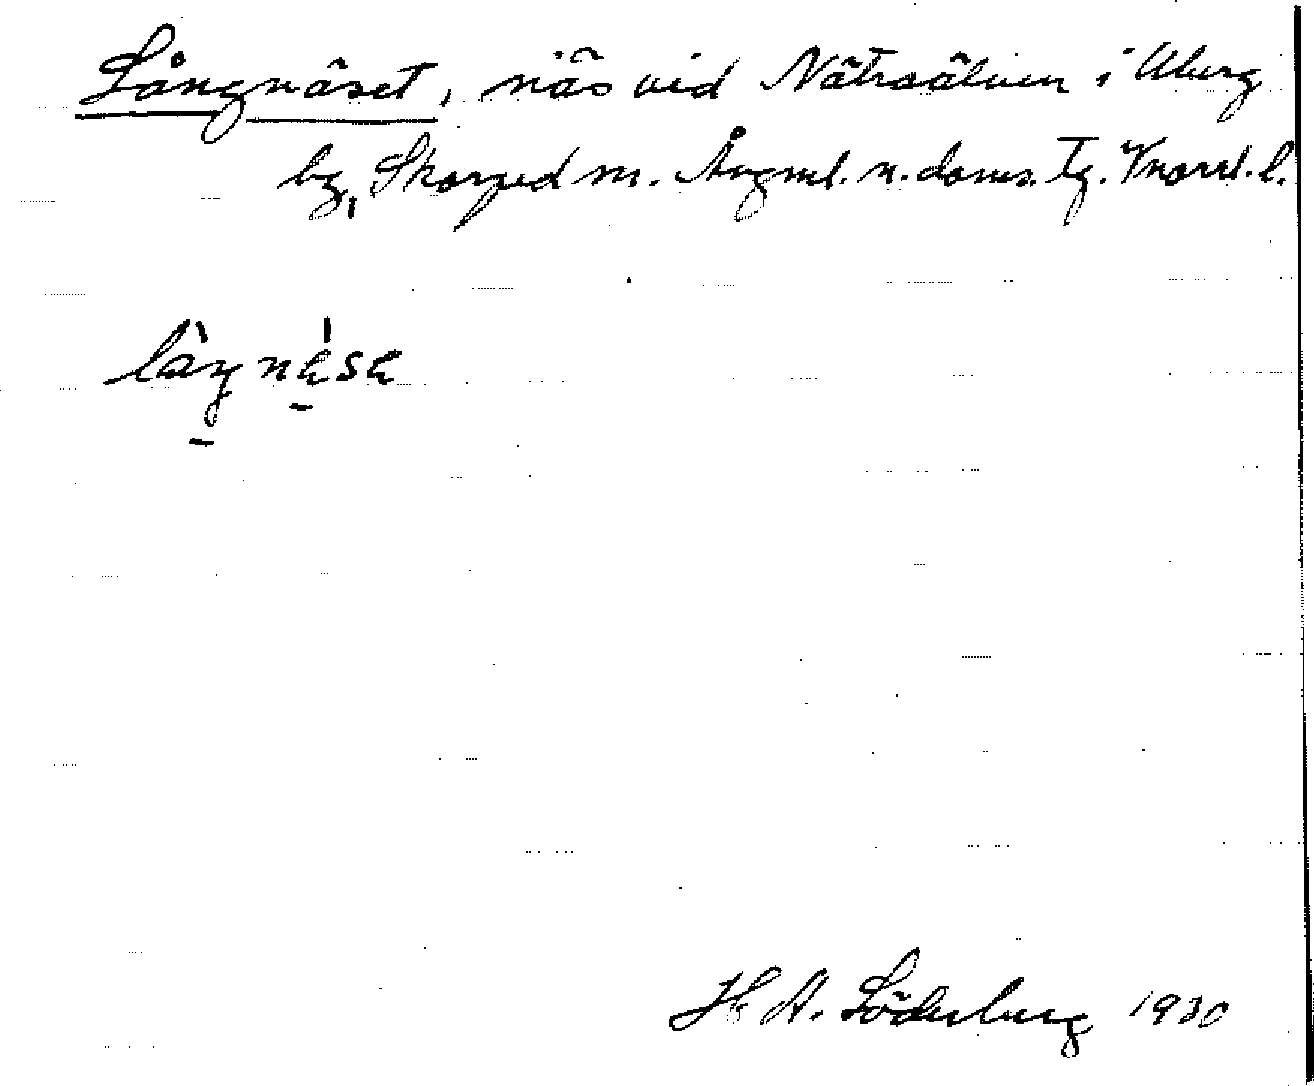 Långnäset, näs vid Nätraälven i Uberg
by, Skorped sn. Ångml. n. doms. tg. Vnorrl. l.
låŋnẹ́sẹ
H A. Söderberg 1930